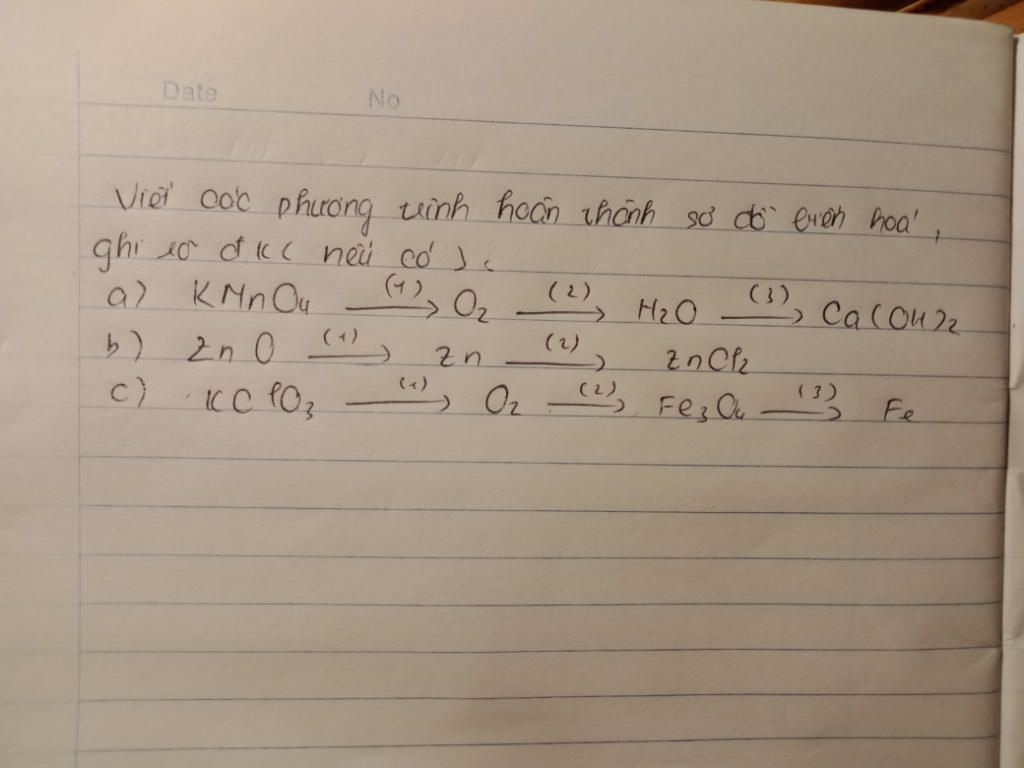 Date No
Viết các phương trình hoàn thành sơ đồ biến hoá,
ghi rõ đK ( nếu có ).
a) KMnO4 (1)→ O2 (2)→ H2O (3)→ Ca(OH)2
b) ZnO (1)→ Zn (2)→ ZnCl2
c) KClO3 (1)→ O2 (2)→ Fe3O4 (3)→ Fe